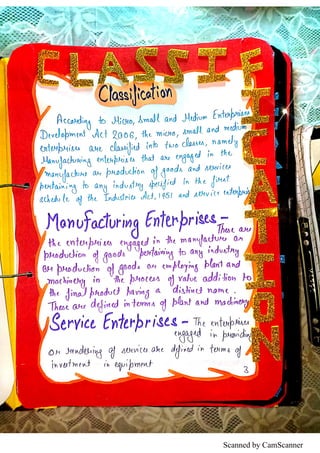 CLASSIFICATION
Classification
According to Micro, Small and Medium Enterprises
Development Act 2006, the micro, small and medium
enterprises are classified into two classes, namely
Manufacturing enterprises that are engaged in the
manufacture or production of goods and services
pertaining to any industry specified in the first
schedule of the Industries Act, 1951 and service enterprises
Manufacturing Enterprises -
These are
the enterprises engaged in the manufacture or
production of goods pertaining to any industry
or production of goods or employing plant and
machinery in the process of value addition to
the final product having a distinct name.
These are defined in terms of plant and machinery
Service Enterprises - The enterprises
engaged in providing
or rendering of services are defined in terms of
investment in equipment
3
Scanned by CamScanner